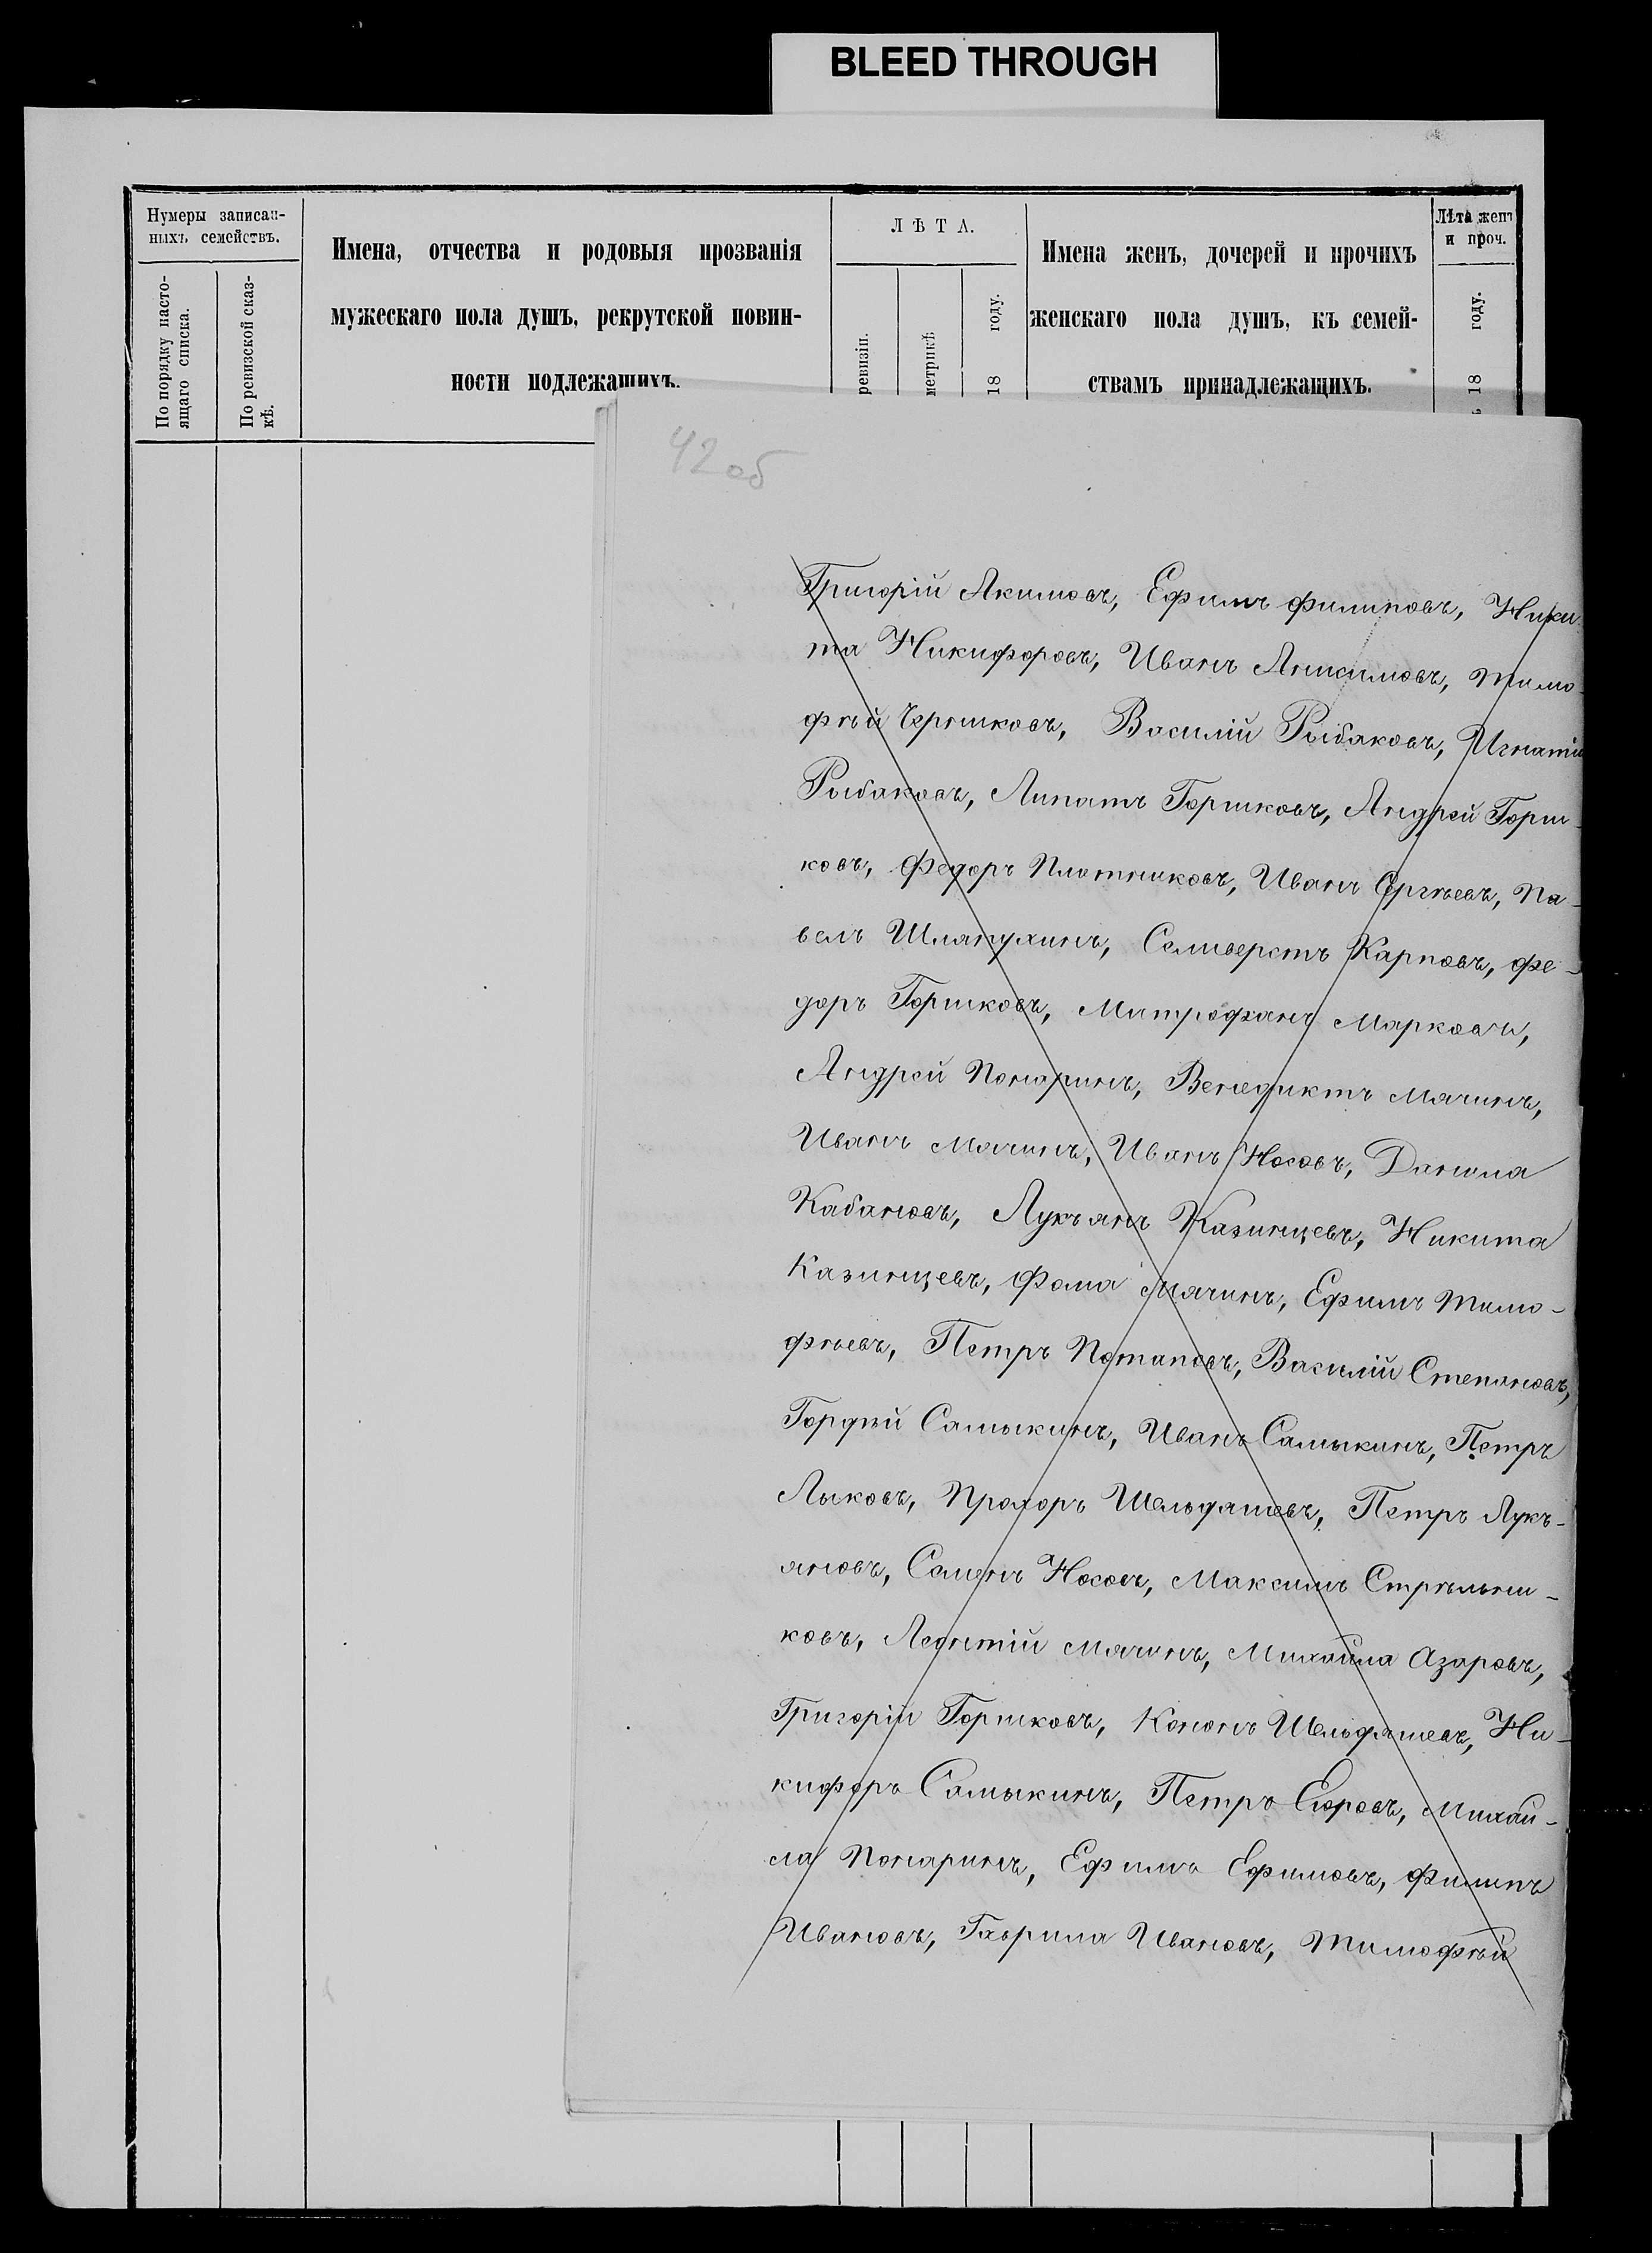 BLEED THROUGH
Нумеры записан-
ныхъ семействъ.
По порядку насто-
ящаго списка.
По ревизской сказ-
кѣ.
Имена, отчества и родовыя прозванія
мужескаго пола душъ, рекрутской повин-
ности подлежащихъ.
ЛѢТА.
ревизіи.
метрикѣ
18 году.
Имена женъ, дочерей и прочихъ
женскаго пола душъ, къ семей-
ствамъ принадлежащихъ.
Лѣта женъ
и проч.
18 году.
42 об
Григорій Акимовъ, Ефимъ Филиповъ, Ники
та Никифоровъ, Иванъ Анисимовъ, Тимо-
фѣй Горшковъ, Василій Рыбаковъ, Игнатій
Рыбаковъ, Липатъ Горшковъ, Андрей Горш-
ковъ, Федоръ Плотниковъ, Иванъ Сергѣевъ, Па-
велъ Шляпухинъ, Селиверстъ Карповъ, Фе-
доръ Горшковъ, Митрофанъ Марковъ,
Андрей Понаринъ, Венедиктъ Мячинъ,
Иванъ Мячинъ, Иванъ Носовъ, Данила
Кабановъ, Лукъянъ Казинцевъ, Никита
Казинцевъ, Фома Мячинъ, Ефимъ Тимо-
фѣевъ, Петръ Потаповъ, Василій Степановъ,
Гордѣй Самыкинъ, Иванъ Самыкинъ, Петръ
Лыковъ, Прохоръ Шельдяшевъ, Петръ Лукъ-
яновъ, Семенъ Носовъ, Максимъ Стрѣльни-
ковъ, Леонтій Мячинъ, Михайла Азаровъ,
Григорій Горшковъ, Кононъ Шельдяшевъ, Ни-
кифоръ Самыкинъ, Петръ Егоровъ, Михай-
ла Понаринъ, Ефимъ Ефимовъ, Филипъ
Ивановъ, Гаврила Ивановъ, Тимофѣй